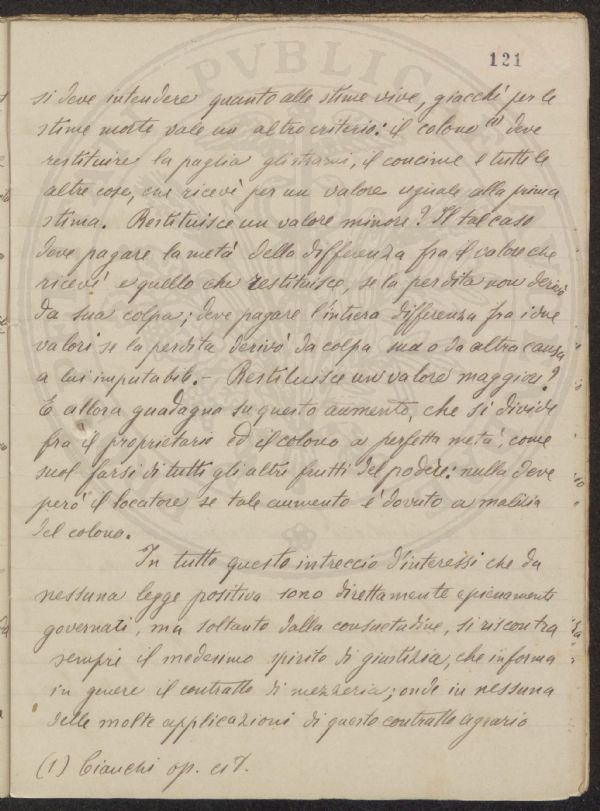 121
si deve intendere quanto alle stime vive, giacchè per le
stime morte vale un altro criterio: il colono (1) deve
restituire la paglia gli strami, il concime e tutte le
altre cose, che ricevè per un valore uguale alla prima
stima. Restituisce un valore minore? Il tal caso
deve pagare la metà della differenza fra il valore che
ricevè e quello che restituisce, se la perdita non derivò
da sua colpa; deve pagare l'intiera differenza fra i due
valori se la perdita derivò da colpa sua o da altra causa
a lui imputabile. - Restituisce un valore maggiore?
E allora guadagna su questo aumento, che si divide
fra il proprietario ed il colono a perfetta metà, come
suol farsi di tutti gli altri frutti del podere: nulla deve
però il locatore se tale aumento è dovuto a malizia
del colono.
In tutto questo intreccio d'interessi che da
nessuna legge positiva sono direttamente e pienamente
governati, ma soltanto dalla consuetudine, si riscontra
sempre il medesimo spirito di giustizia, che informa
in genere il contratto di mezzeria; onde in nessuna
delle molte applicazioni di questo contratto agrario
(1) Cianchi op. cit.
PVBLIC